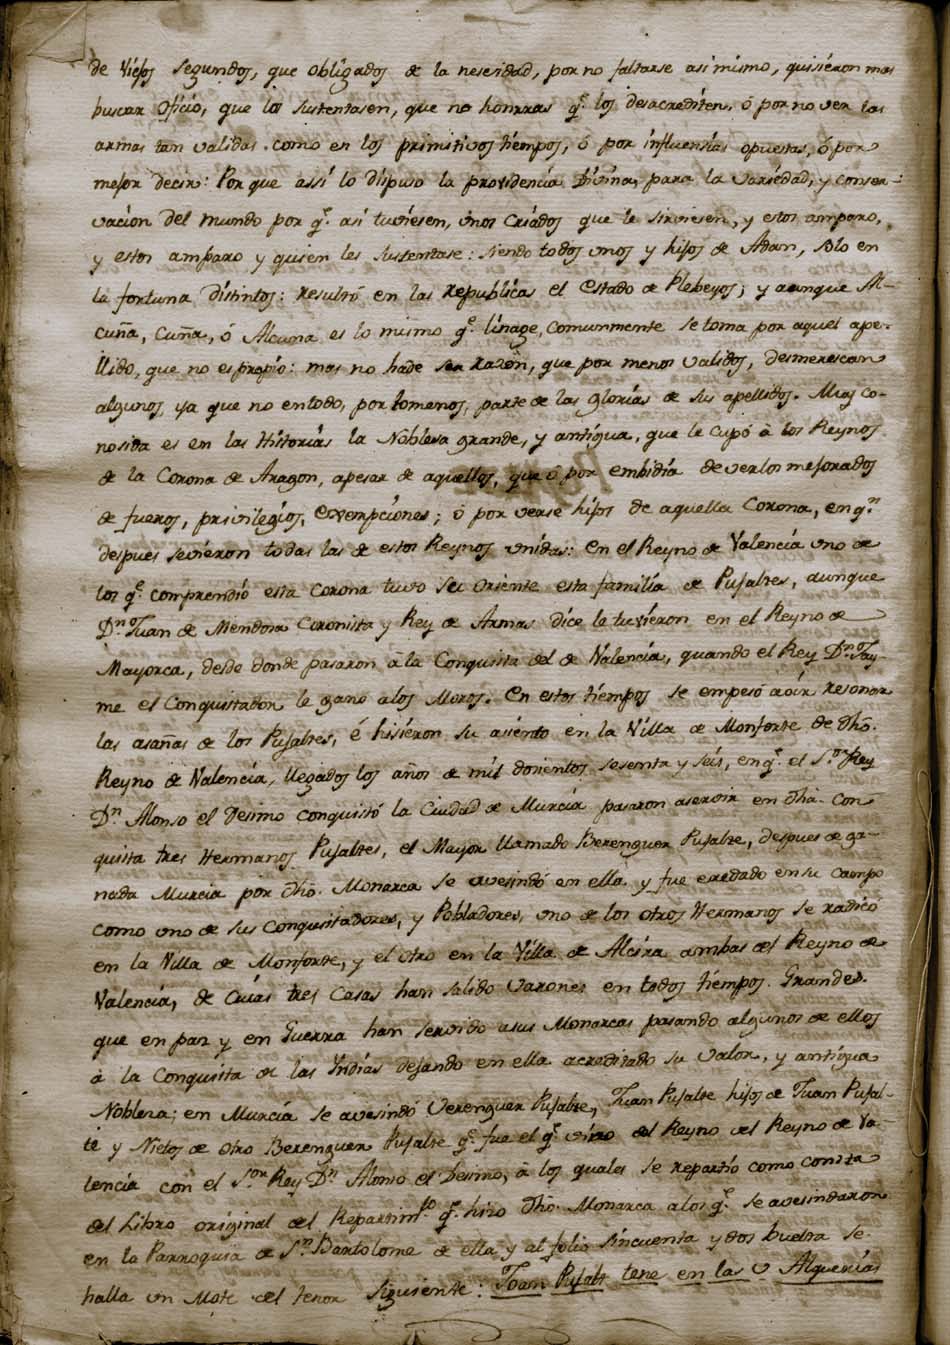 de viejos segundos, que obligados de la nesesidad, por no faltarse asi mismo, quisieron mas
buscar oficio, que los sustentasen, que no honrras q.e los desacrediten, ó por no ver las
armas tan validas como en los primitivos tiempos, ó por influensias opuestas, ó por
mejor decir: Por que assi lo dispuso la providencia Divina, para la variedad, y conser-
vacion del mundo por q.e asi tuviesen, unos Criados que le sirviesen, y estos amparo,
y estos amparo y quien les sustentase: siendo todos unos y hijos de Adan, solo en
la fortuna distintos: resultó en las republicas el estado de Plebeyos; y aunque Al-
cuña, Cuña, ó Alcuna es lo mismo q.e linage, comunmente se toma por aquel ape-
llido, que no es propio: mas no hade ser razon, que por menos validos, desmerescan
algunos, ya que no entodo, por lomenos, parte de las glorias de sus apellidos. Muy co-
nosida es en las Historias la Noblesa grande, y antigua, que le cupó à los Reynos
de la Corona de Aragon, apesar de aquellos, que ó por embidia de verlos mejorados
de fueros, privilegios, exempciones; ó por verse hijos de aquella Corona, en q.n
despues sevieron todas las de estos Reynos unidas: en el Reyno de Valencia uno de
los q.e comprendió esta Corona tuvo su oriente esta familia de Pujaltes, aunque
D.n Juan de Mendosa Coronista y Rey de Armas dice la tuvieron en el Reyno de
Mayorca, desde donde pasaron à la Conquista del de Valencia, quando el Rey D.n Jay-
me el Conquistador le gano alos Moros. En estos tiempos se empesó aoir resonar
las asañas de los Pujaltes, é hisieron su asiento en la Villa de Monforte de dho.
Reyno de Valencia, llegados los años de mil dosientos sesenta y seis, en q.e el S.or Rey
D.n Alonso el Desimo conquistó la Ciudad de Murcia pasaron aservir en dha. con-
quista tres Hermanos Pujaltes, el Mayor llamado Berenguer Pujalte, despues de ga-
nada Murcia por dho. Monarca se avesindó en ella y fue eredado en su campo
como uno de sus Conquistadores, y Pobladores, uno de los otros Hermanos se radicó
en la Villa de Monforte, y el otro en la Villa de Alcira ambas del Reyno de
Valencia, de cuias tres Casas han salido varones en todos tiempos Grandes.
que en paz y en Guerra han servido asus Monarcas pasando algunos de ellos
à la Conquista de las Yndias dejando en ella acreditado su valor, y antigua
Noblesa; en Murcia se avesindó Verenguer Pujalte, Juan Pujalte hijos de Juan Pujal-
te y Nietos de otro Berenguer Pujalte q.e fue el q.e vino del Reyno del Reyno de Va-
lencia con el S.or Rey D.n Alonso el Desimo, à los quales se repartio como consta
del Libro original del Repartim.to q.e hizo dho. Monarca alos q.e se avesindaron
en la Parroquia de S.n Bartolome de ella y al folio sincuenta y dos buelta se
halla un Mote del tenor siguiente: Joan Pujalt tene en las V Alquerias